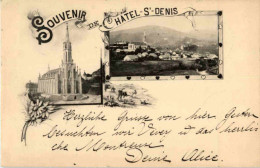 SOUVENIR
DE CHATEL-ST-DENIS
Herzliche Grüsse von hier, Gestern
besuchten wir Vevey u. das herrli-
che Montreux.
Deine Alice.